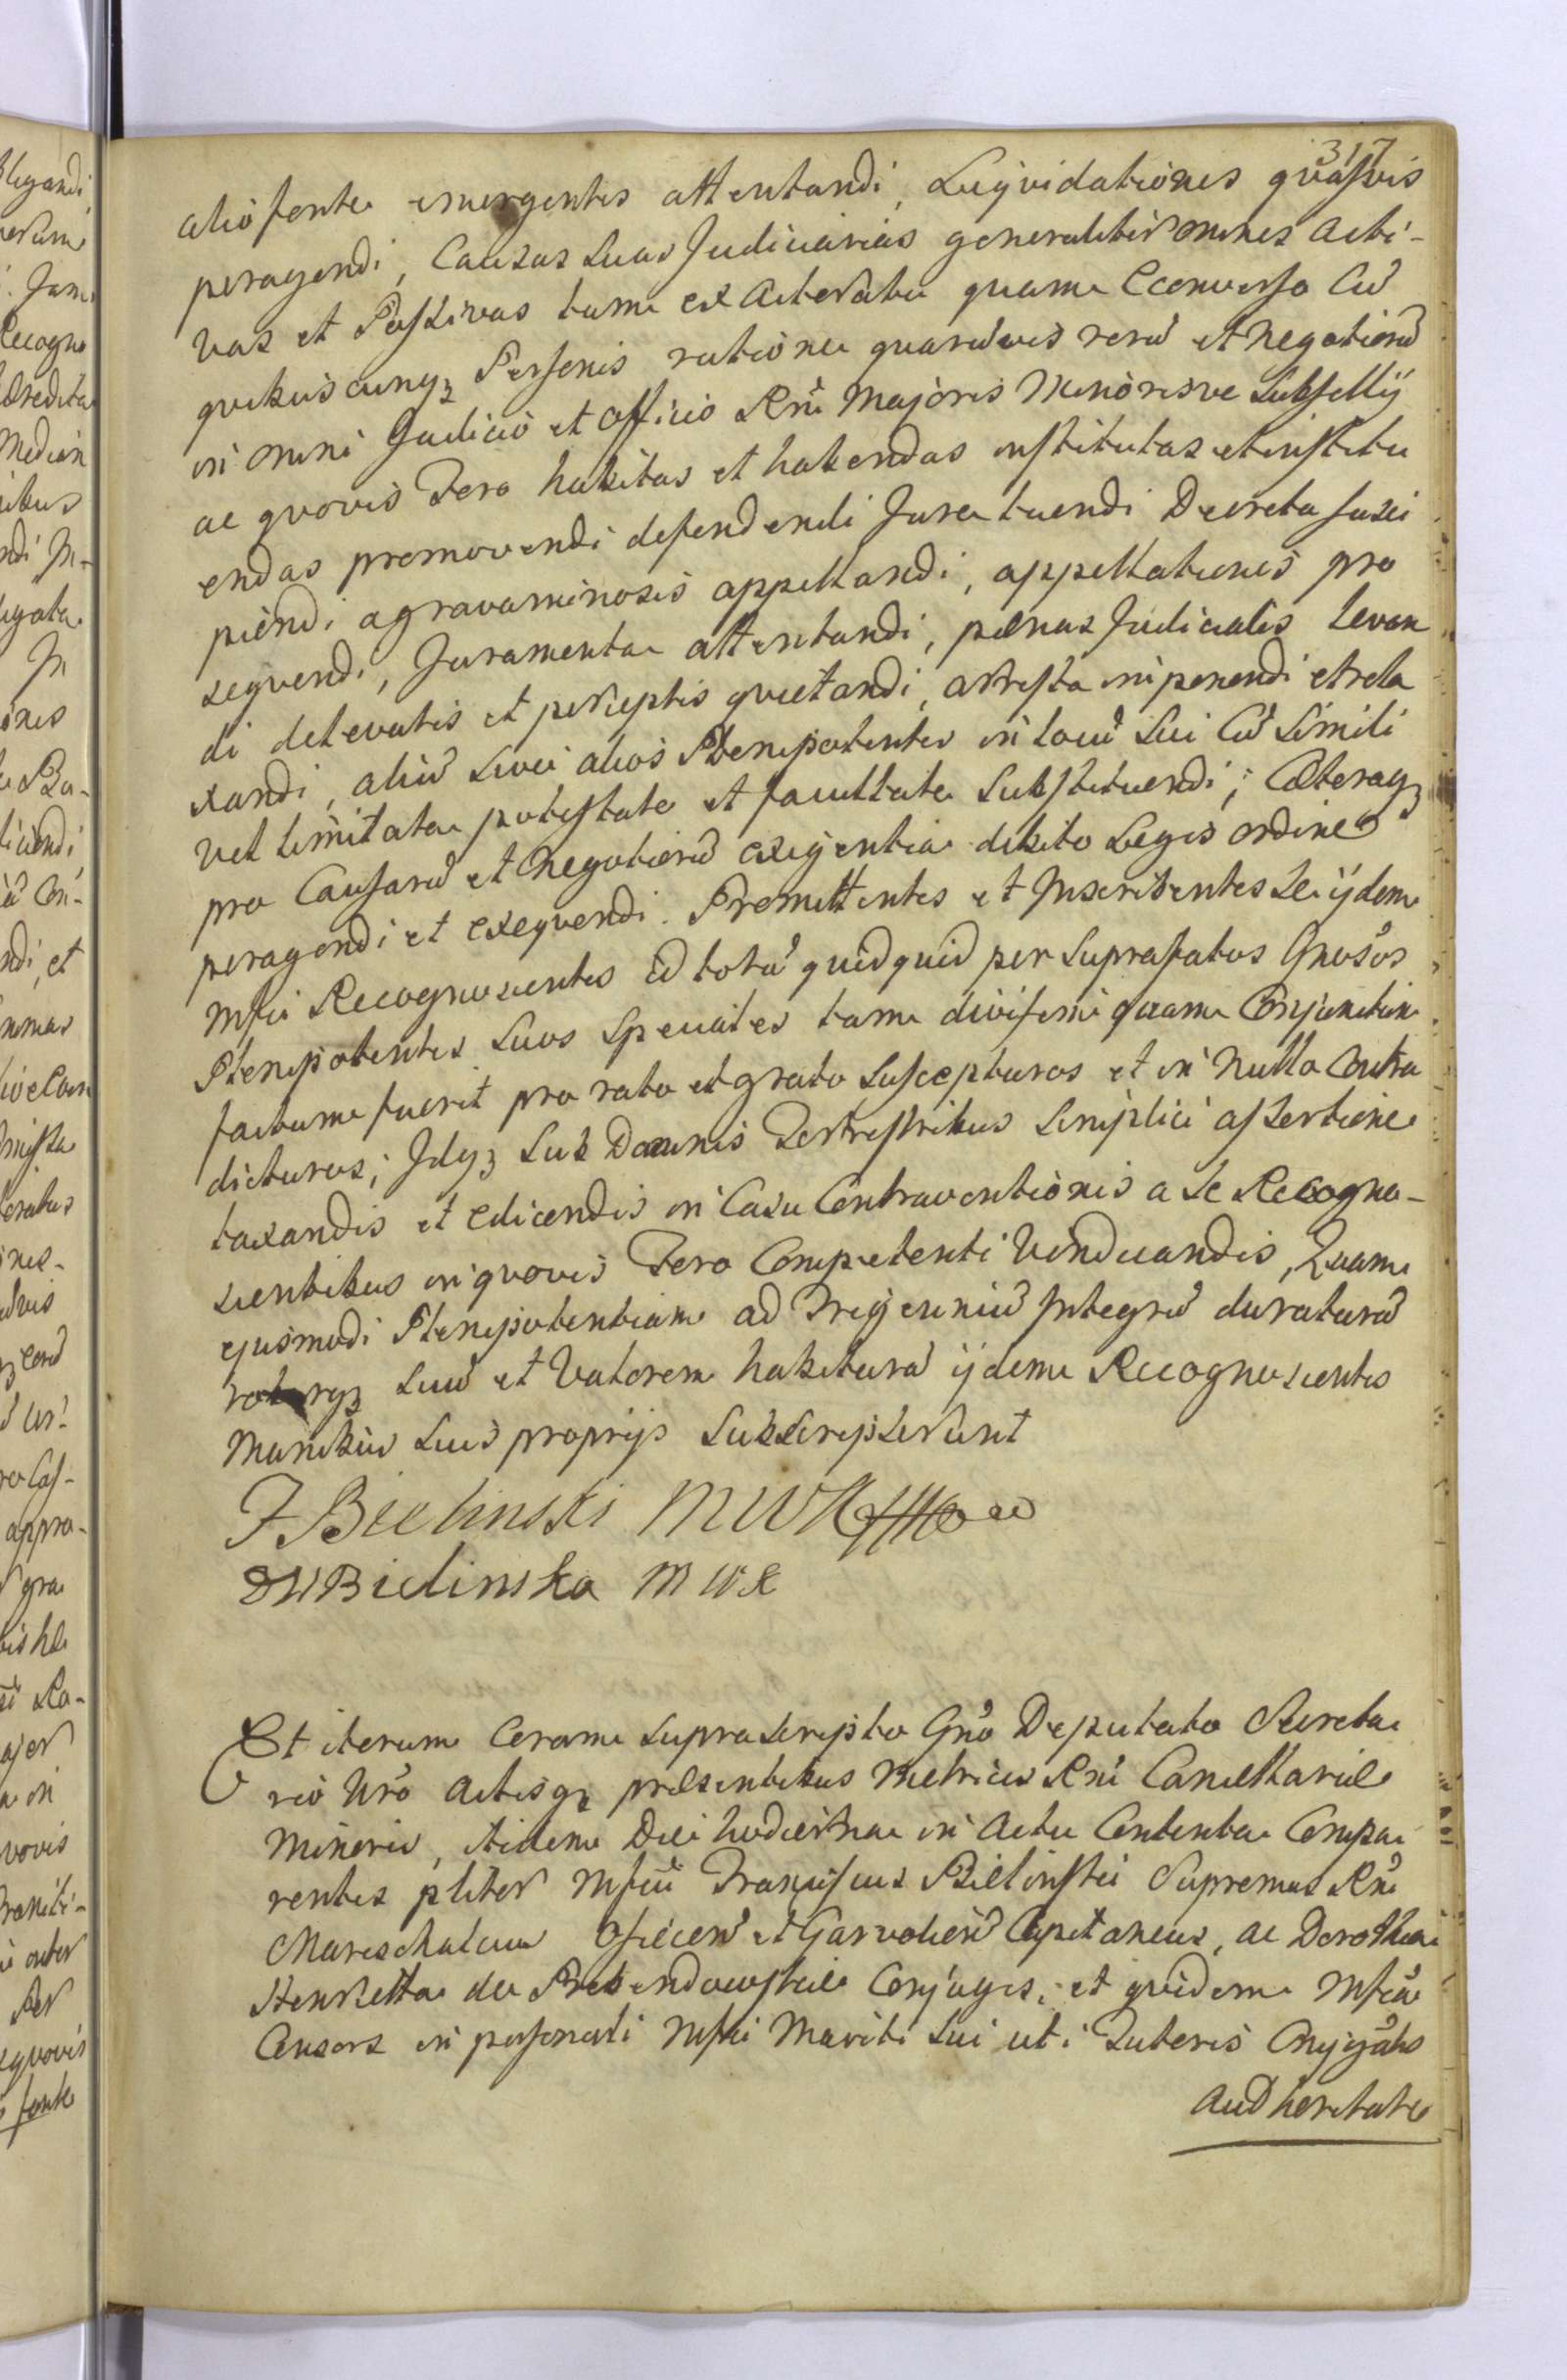 317
alio fonte emergentes attentandi, Liqvidationes qvasvis
peragendi, Causas Suas Judiciarias generaliter omnes Acti-
vas et Passivas tam ex Actoratu quam Econverso Cũ
qvibuscunqꝫ Personis ratione quarũvis rerũ et Negotiorũ
in omni Judicio et Officio Rni Majoris Minorisve Subsellij
ac qvovis Foro habitas et habendas institutas et institu
endas promovendi defendendi Jura tuendi Decreta susci
piendi agravaminosis appellandi, appellationes pro
seqvendi, Juramenta attentandi, pænas Judiciales levan
di de levatis et perceptis qvietandi, arresta imponendi et rela
xandi, aliũ Sive alios Plenipotentes in locũ Sui Cũ Simili
vel limitata potestate et facultate Substituendi; Cæteraqꝫ
pro Causarũ et Negotiorũ exigentia debito Legis ordine
peragendi et exeqvendi. Promittentes et Inscribentes Se ijdem
Mfci Recognoscentes id totũ quidquid per Suprafatos Gnosos
Plenipotentes Suos Speciales tam divisim quam Conjunctim
factum fuerit pro rato et grato Suscepturos et in nullo Contra
dicturos; Idqꝫ Sub Damnis Terrestribus Simplici assertione
taxandis et edicendis in Casu Contraventionis a Se Recogno-
scentibus in qvovis Foro Competenti Vindicandis, Quam
ejusmodi Plenipotentiam ad Triennium Integrũ duraturã
roburqꝫ Suũ et Valorem habiturã ijdem Recognoscentes
Manibus Suis proprijs Subscripserunt
F Bielinski MWK
DH Bielinska MWK
Et iterum Coram Supra Scripto Gnõ Deputato Secreta
rio Nrõ Actisqꝫ præsentibus Metrices Rni Cancellariæ
Minoris, itidem Die hodierna in Actu Contenta Compa
rentes pliter Mfcũs Franciscus Bielinski Supremus Rni
Mareschalcus Osiecen et Garvolien Capitaneus, ac Dorothea
Henrietta de Przebendowskie Conjuges, et quidem Mfca
Consors in personali Mfci Mariti Sui uti Tutoris Conjugalis
Authoritate